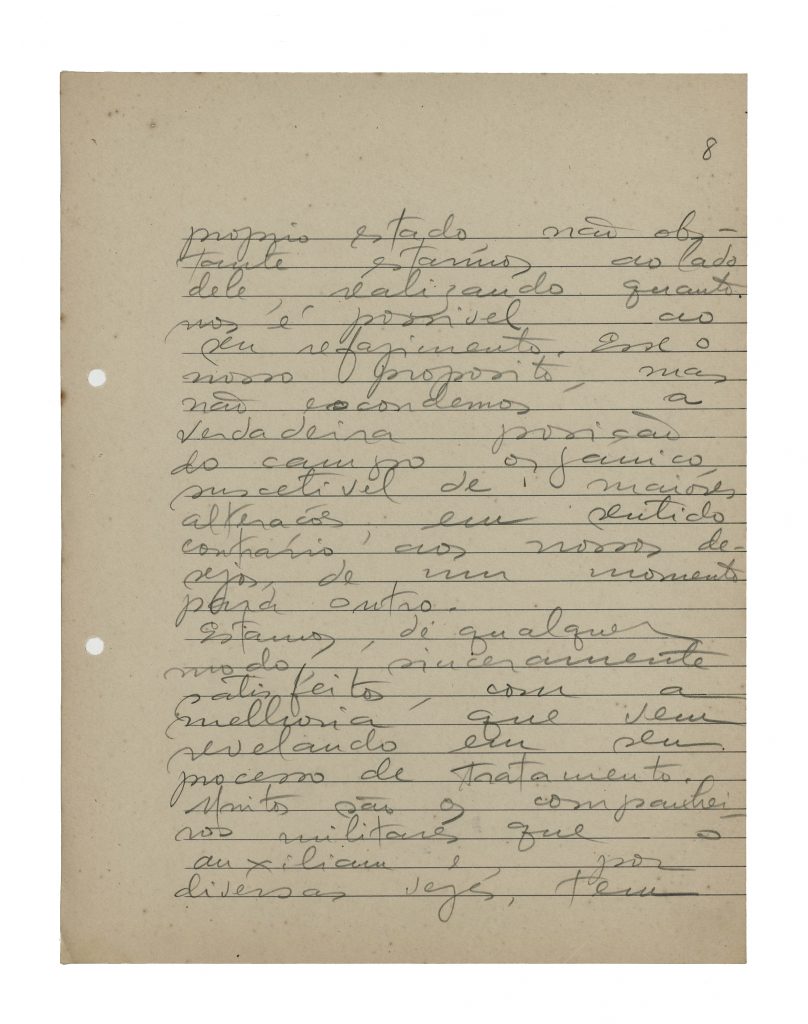 8
proprio estado não obs-
tante estarmos ao lado
dele, realizando quanto
nos é possivel ao
seu refazimento. Esse o
nosso proposito, mas
não escondemos a
verdadeira posição
do campo organico,
suscetivel de maióres
alterações, em sentido
contrário aos nossos de-
sejos, de um momento
pará outro.
Estamos, de qualquer
modo, sinceramente
satisfeitos, com a
melhoria que vem
revelando em seu
processo de tratamento.
Muitos são os companhei-
ros militares que o
auxiliam e, por
diversas vezes, tem